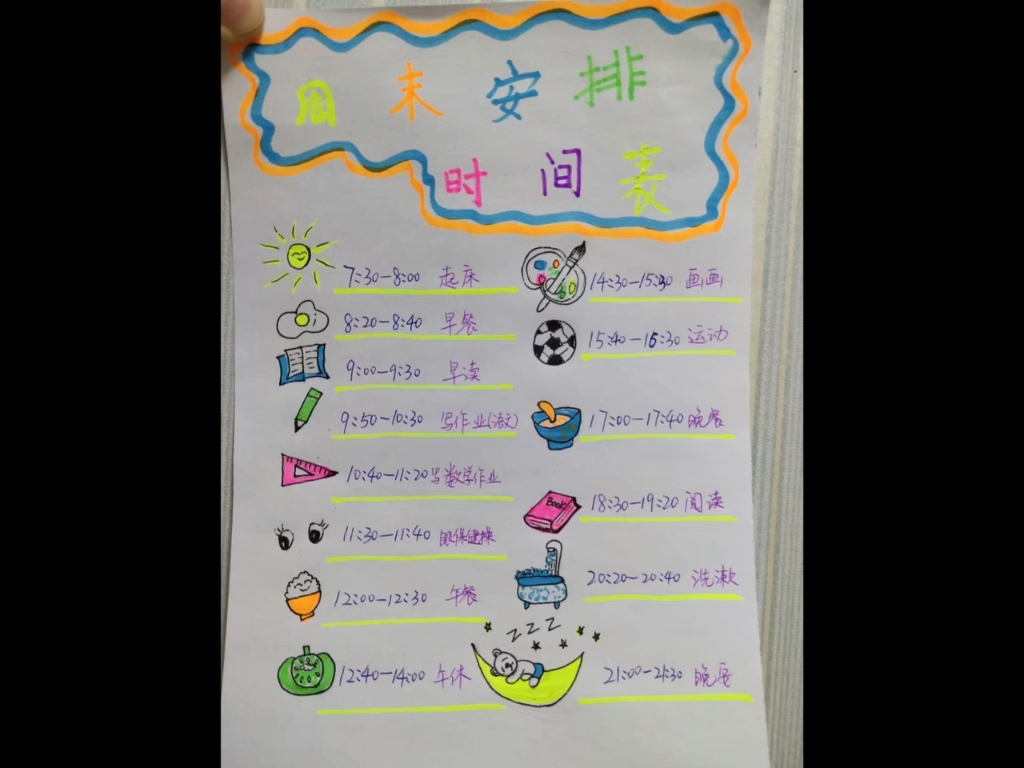 周末安排
时间表
7:30-8:00 起床
8:20-8:40 早餐
9:00-9:30 早读
9:50-10:30 写作业(语文)
10:40-11:20 写数学作业
11:30-11:40 眼保健操
12:00-12:30 午餐
12:40-14:00 午休
14:30-15:30 画画
15:40-16:30 运动
17:00-17:40 晚餐
Book
18:30-19:20 阅读
20:20-20:40 洗漱
ZZZ
21:00-21:30 晚安